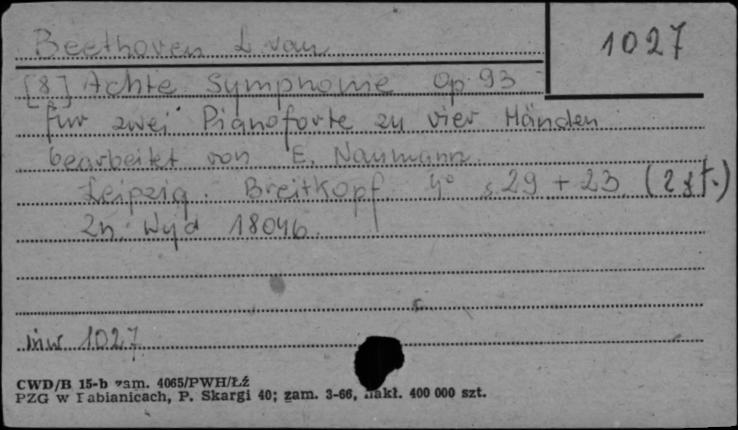 Beethoven L. van
1027
[8] Achte Symphonie Op. 93
für zwei Pianoforte zu vier Händen
bearbeitet von E. Naumann.
Leipzig. Breitkopf. 4° s. 29 + 23. (2 st.)
Zn. Wyd 18046.
inw 1027
CWD/B 15-b zam. 4065/PWH/ŁŹ
PZG w Pabianicach, P. Skargi 40; zam. 3-66, nakł. 400 000 szt.